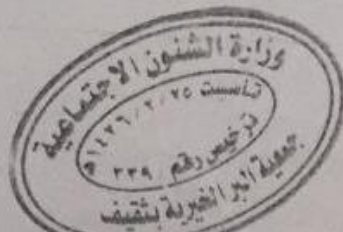 وزارة الشئون الاجتماعية
تأسست ١٤٢٦/٢/٢٥ هـ
ترخيص رقم ٣٣٩
جمعية البر الخيرية بثقيف